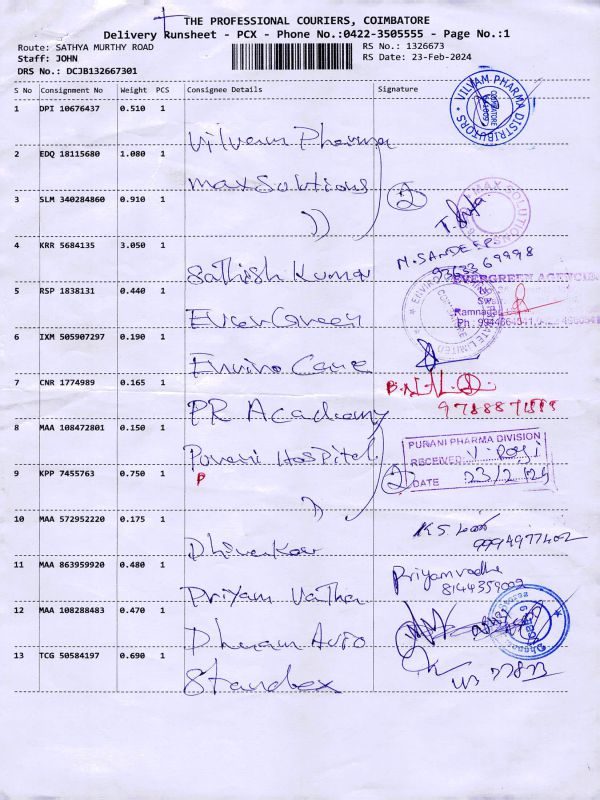 THE PROFESSIONAL COURIERS, COIMBATORE
Delivery Runsheet - PCX - Phone No.:0422-3505555 - Page No.:1
Route: SATHYA MURTHY ROAD
RS No.: 1326673
Staff: JOHN
RS Date: 23-Feb-2024
DRS No.: DCJB132667301
S No Consignment No Weight PCS Consignee Details Signature
1 DPI 10676437 0.510 1
VILVAM PHARMA DISTRIBUTORS
COIMBATORE
Vilvam Pharma
2 EDQ 18115680 1.080 1
Max Solutions
2
3 SLM 340284860 0.910 1
MAX SOLUTIONS
))
4 KRR 5684135 3.050 1
M. SANDEEP
93633 69998
Sathish Kumar
EVERGREEN AGENCIES
5 RSP 1838131 0.440 1
Ramnagar
Ever Green
6 IXM 505907297 0.190 1
Enviro Care
7 CNR 1774989 0.165 1
PR Academy
8 MAA 108472801 0.150 1
PURANI PHARMA DIVISION
RECEIVED
Purani Hospital
9 KPP 7455763 0.750 1
P
2
DATE 23/2/24
)
10 MAA 572952220 0.175 1
9994977402
11 MAA 863959920 0.480 1
Priyamvadha
8144359009
Priyam Vatha
12 MAA 108288483 0.470 1
Dhanam Auto
13 TCG 50584197 0.690 1
Standex